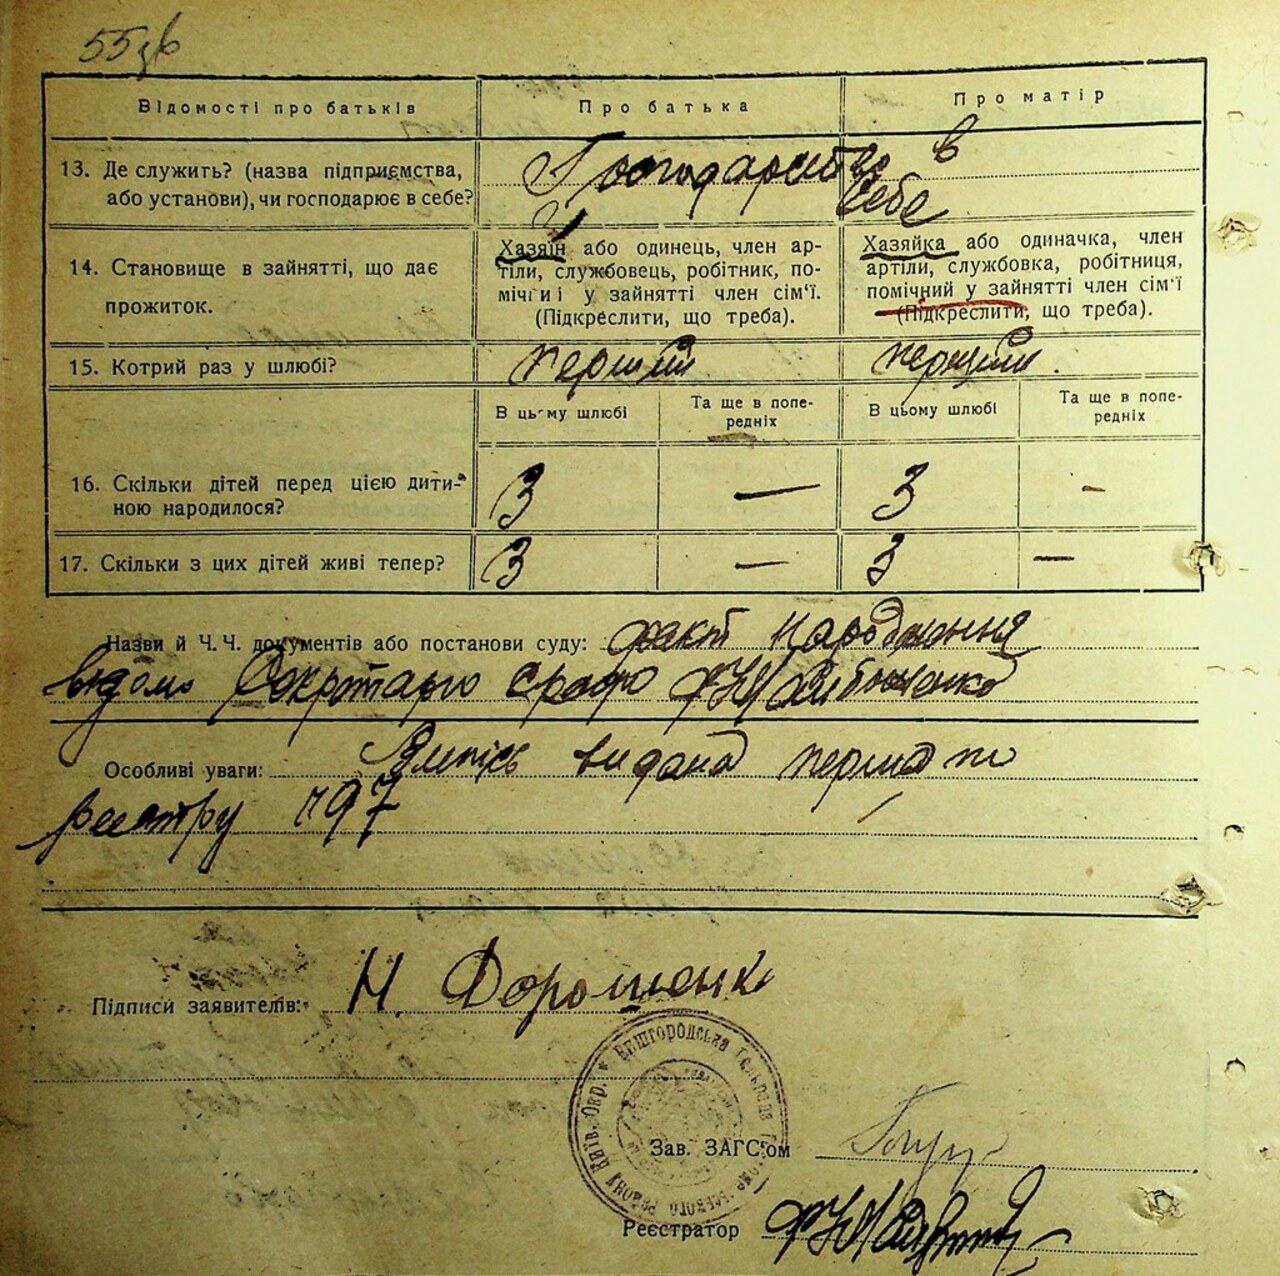 55зв
Відомості про батьків
Про батька
Про матір
13. Де служить? (назва підприємства,
або установи), чи господарює в себе?
Господарство в
себе
14. Становище в зайнятті, що дає
прожиток.
Хазяїн або одинець, член ар-
тіли, службовець, робітник, по-
мічний у зайнятті член сім'ї.
(Підкреслити, що треба).
Хазяйка або одиначка, член
артіли, службовка, робітниця,
помічний у зайнятті член сім'ї
(Підкреслити, що треба).
15. Котрий раз у шлюбі?
перший
перший
В цьому шлюбі
Та ще в попе-
редніх
В цьому шлюбі
Та ще в попе-
редніх
16. Скільки дітей перед цією дити-
ною народилося?
3 — 3 -
17. Скільки з цих дітей живі тепер?
3 — 3 —
Назви й Ч. Ч. документів або постанови суду: факт народження
відомо
Особливі уваги: Випись видана перша по
реєстру ч 97
Підписи заявителів: Н. Дорошенко
Київ. Окр. * Вишгородська сільрада
району
Зав. ЗАГС'ом
Реєстратор